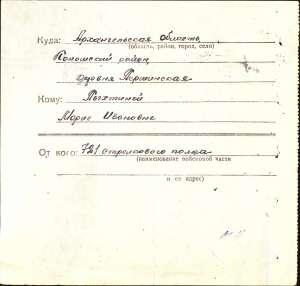 Куда: Архангельская область
(область, район, город, село)
Коношский район
деревня
Кому: Пыхтиной
Марие Ивановне
От кого: 721 стрелкового полка
(наименование войсковой части
и ее адрес)